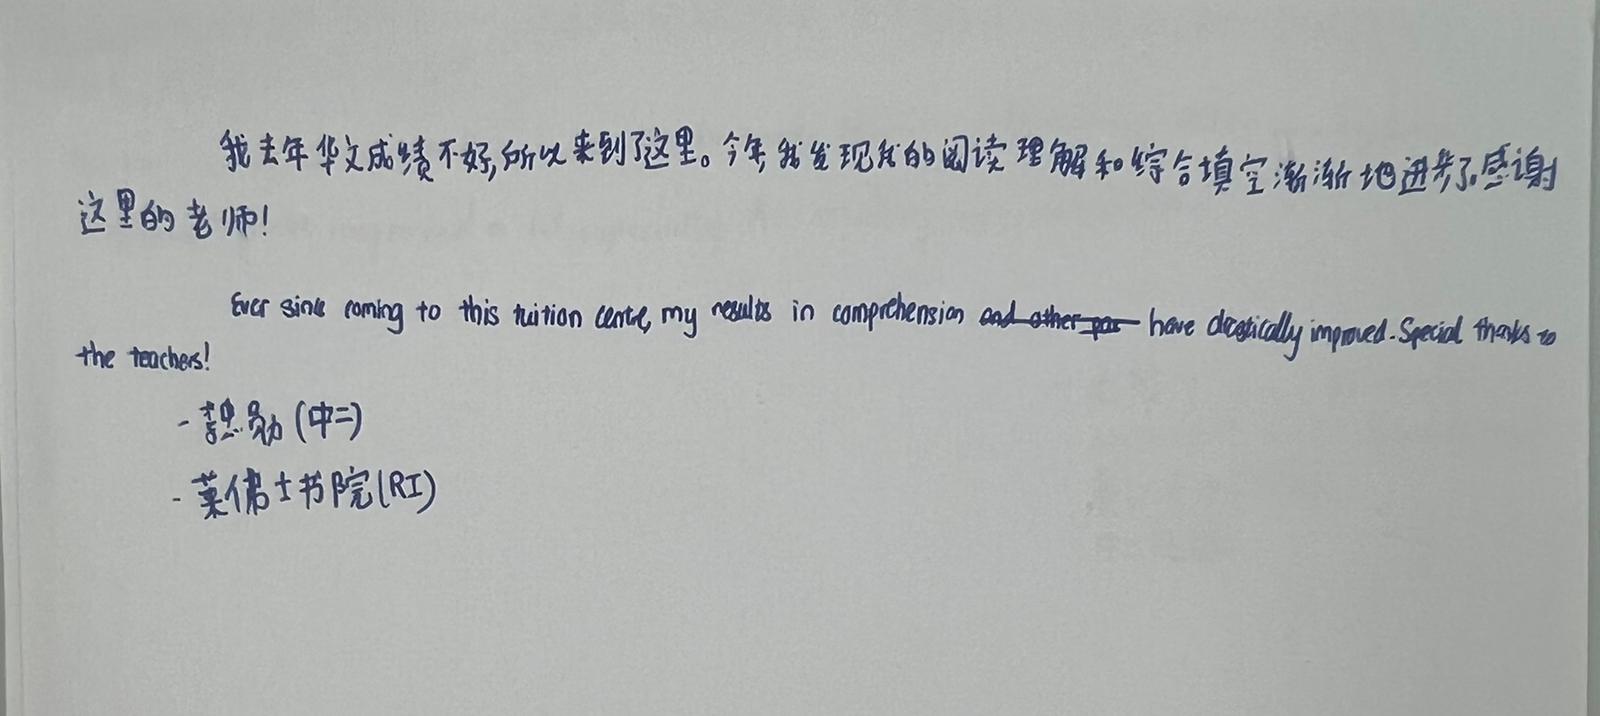 我去年华文成绩不好,所以来到了这里。今年,我发现我的阅读理解和综合填空渐渐地进步了。感谢
这里的老师!
Ever since coming to this tuition centre, my results in comprehension have drastically improved. Special thanks to
the teachers!
- 勋 (中二)
- 莱佛士书院(RI)